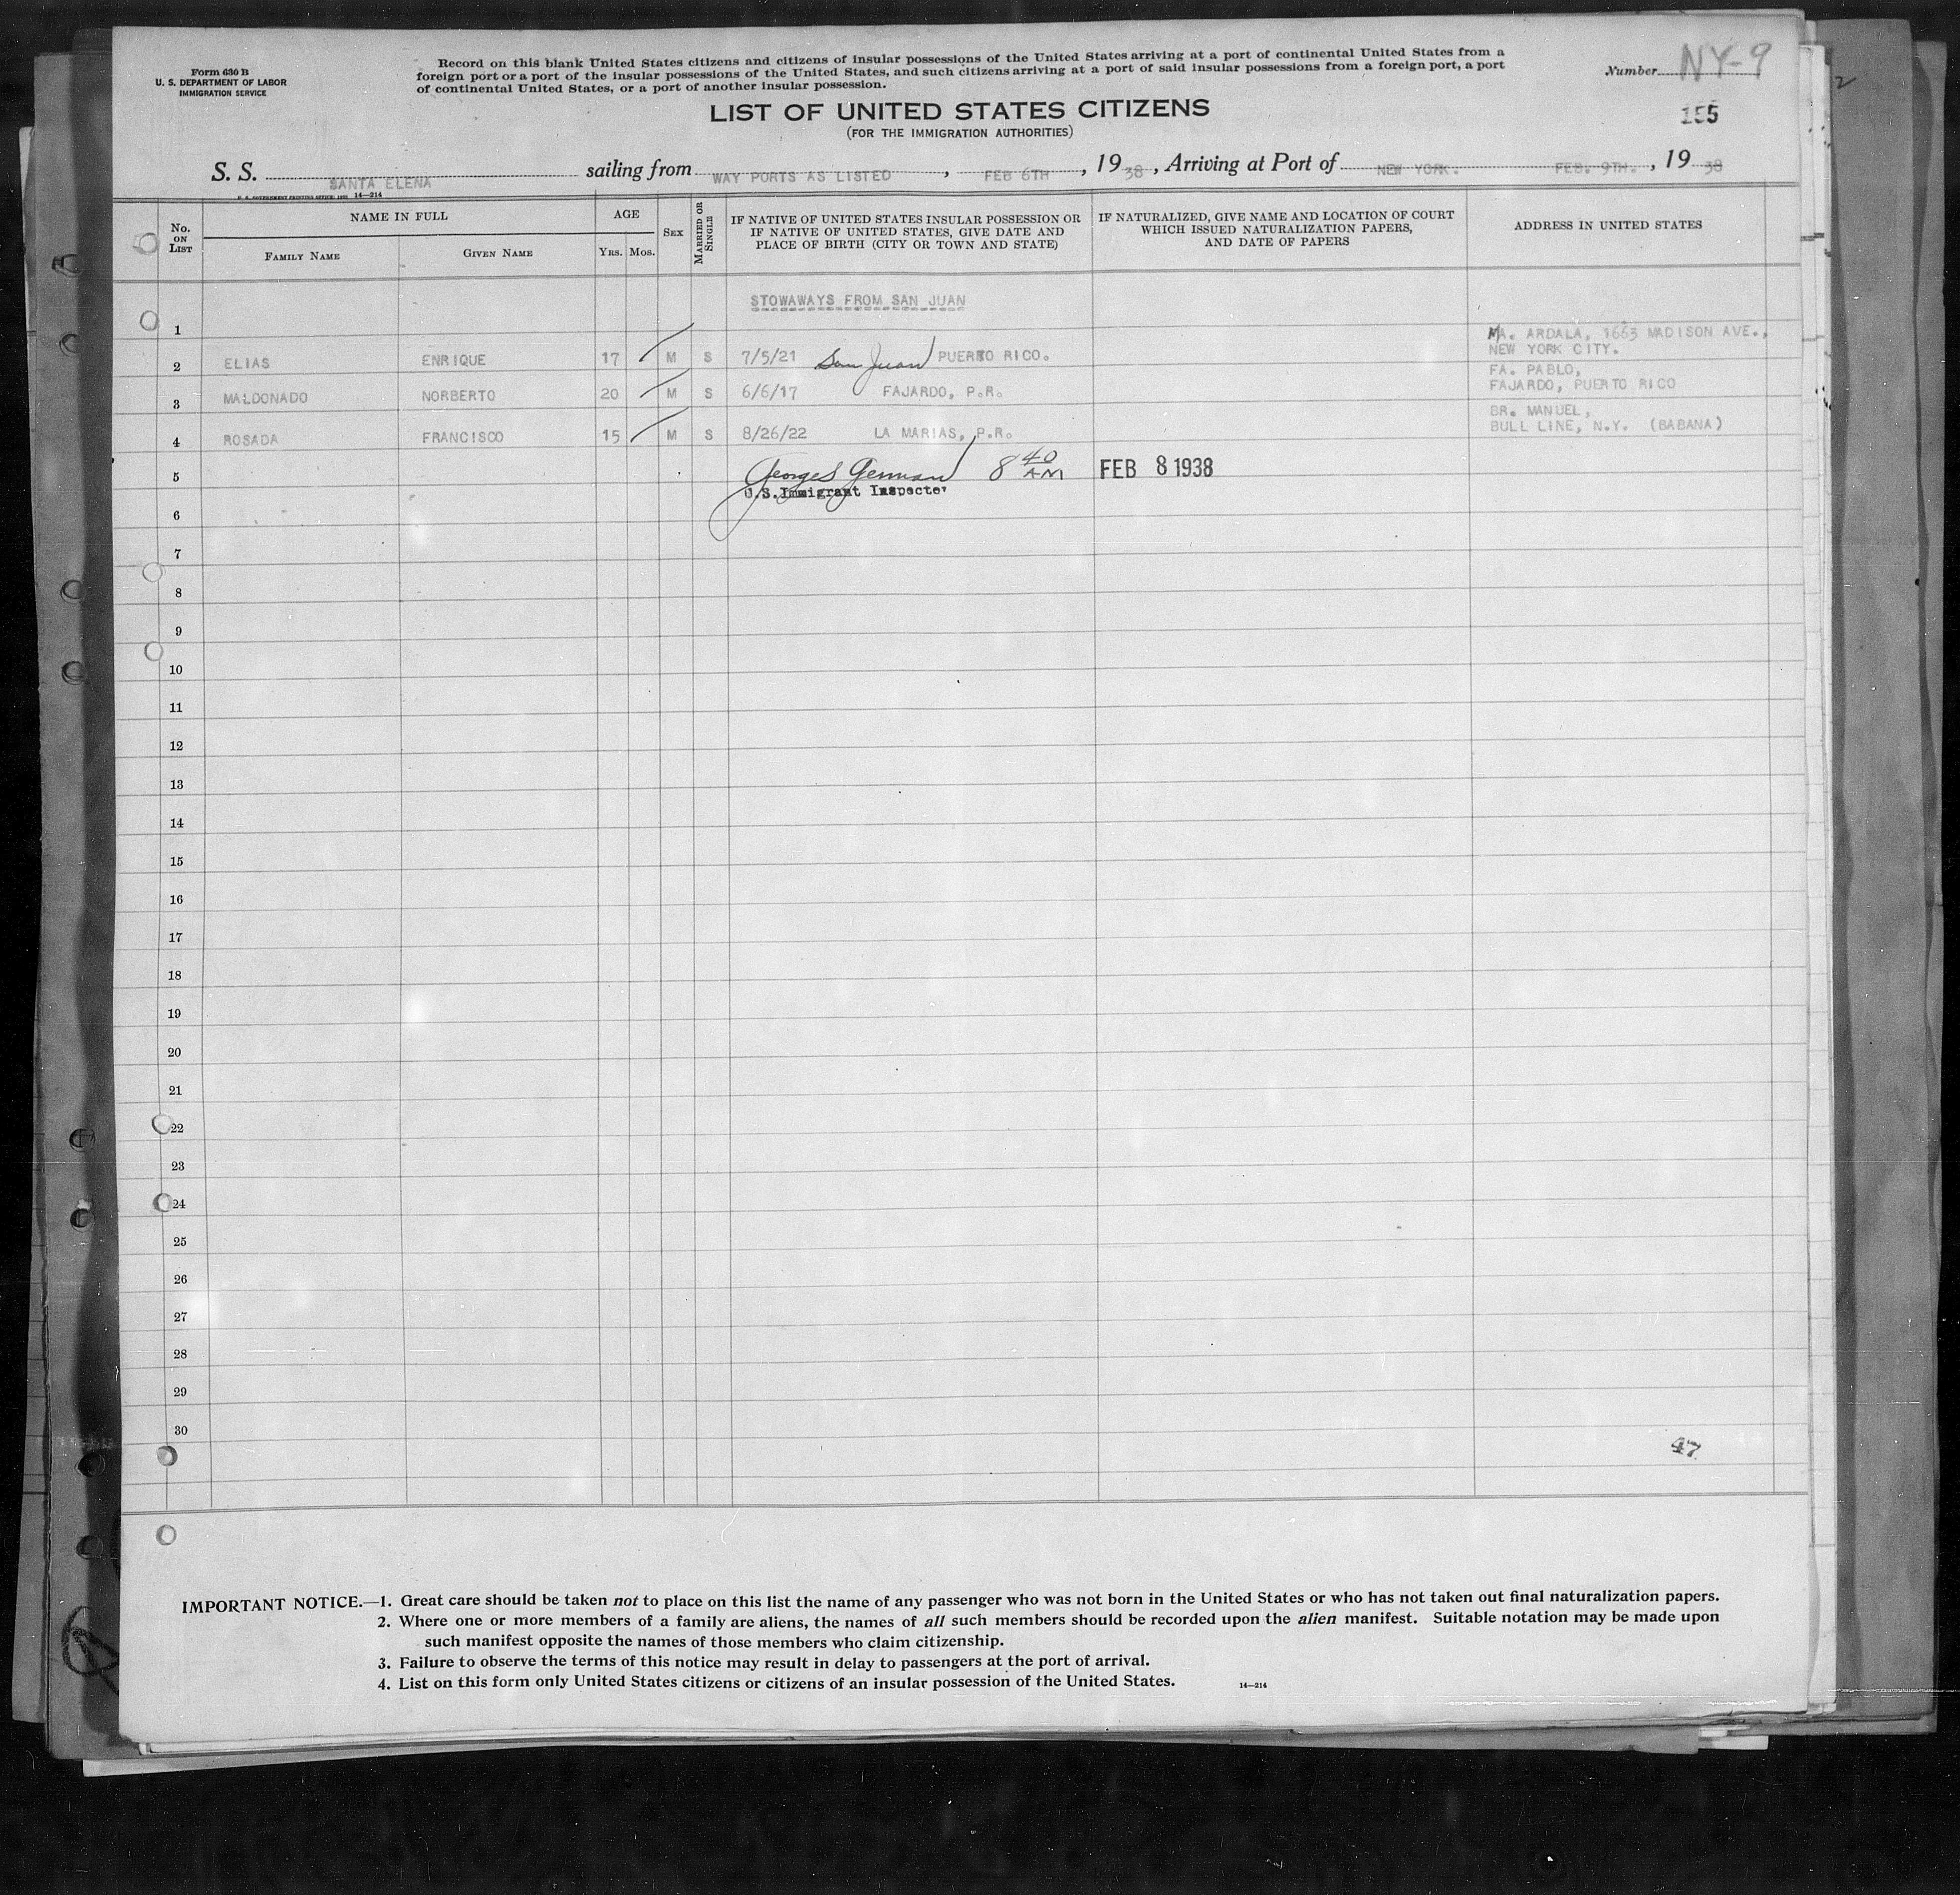 Form 630 B
U. S. DEPARTMENT OF LABOR
IMMIGRATION SERVICE
Record on this blank United States citizens and citizens of insular possessions of the United States arriving at a port of continental United States from a
foreign port or a port of the insular possessions of the United States, and such citizens arriving at a port of said insular possessions from a foreign port, a port
of continental United States, or a port of another insular possession.
Number NY-9
155
LIST OF UNITED STATES CITIZENS
(FOR THE IMMIGRATION AUTHORITIES)
S. S. SANTA ELENA sailing from WAY PORTS AS LISTED, FEB 6TH, 1938, Arriving at Port of NEW YORK. FEB. 9TH., 1938
14—214
No. ON LIST
NAME IN FULL
FAMILY NAME
GIVEN NAME
AGE
YRS. MOS.
SEX
MARRIED OR SINGLE
IF NATIVE OF UNITED STATES INSULAR POSSESSION OR
IF NATIVE OF UNITED STATES, GIVE DATE AND
PLACE OF BIRTH (CITY OR TOWN AND STATE)
IF NATURALIZED, GIVE NAME AND LOCATION OF COURT
WHICH ISSUED NATURALIZATION PAPERS,
AND DATE OF PAPERS
ADDRESS IN UNITED STATES
STOWAWAYS FROM SAN JUAN
1
MA. ARDALA, 1663 MADISON AVE.,
NEW YORK CITY.
2 ELIAS ENRIQUE 17 M S 7/5/21 San Juan PUERTO RICO.
FA. PABLO,
FAJARDO, PUERTO RICO
3 MALDONADO NORBERTO 20 M S 6/6/17 FAJARDO, P.R.
BR. MANUEL,
BULL LINE, N.Y. (BABANA)
4 ROSADA FRANCISCO 15 M S 8/26/22 LA MARIAS, P.R.
5 Georges German 8 40 AM FEB 8 1938
U.S. Immigrant Inspector
6
7
8
9
10
11
12
13
14
15
16
17
18
19
20
21
22
23
24
25
26
27
28
29
30
47
IMPORTANT NOTICE.—1. Great care should be taken not to place on this list the name of any passenger who was not born in the United States or who has not taken out final naturalization papers.
2. Where one or more members of a family are aliens, the names of all such members should be recorded upon the alien manifest. Suitable notation may be made upon
such manifest opposite the names of those members who claim citizenship.
3. Failure to observe the terms of this notice may result in delay to passengers at the port of arrival.
4. List on this form only United States citizens or citizens of an insular possession of the United States.
14—214